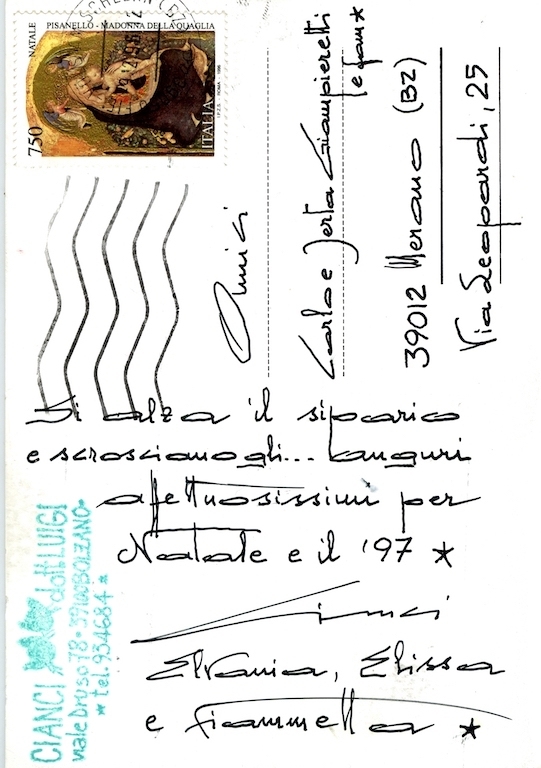 NATALE
PISANELLO - MADONNA DELLA QUAGLIA
750
ITALIA
I.P.Z.S. - ROMA - 1996
Amici
Carlo e Jerta Giampieretti
e fam *
39012 Merano (BZ)
Via Leopardi, 25
Si alza il sipario
e scrosciano gli... auguri
affettuosissimi per
Natale e il '97 *
Elvania, Elissa
e Fiammetta *
CIANCI dott. LUIGI
viale Druso 78 - 39100 BOLZANO
* tel. 934684 *